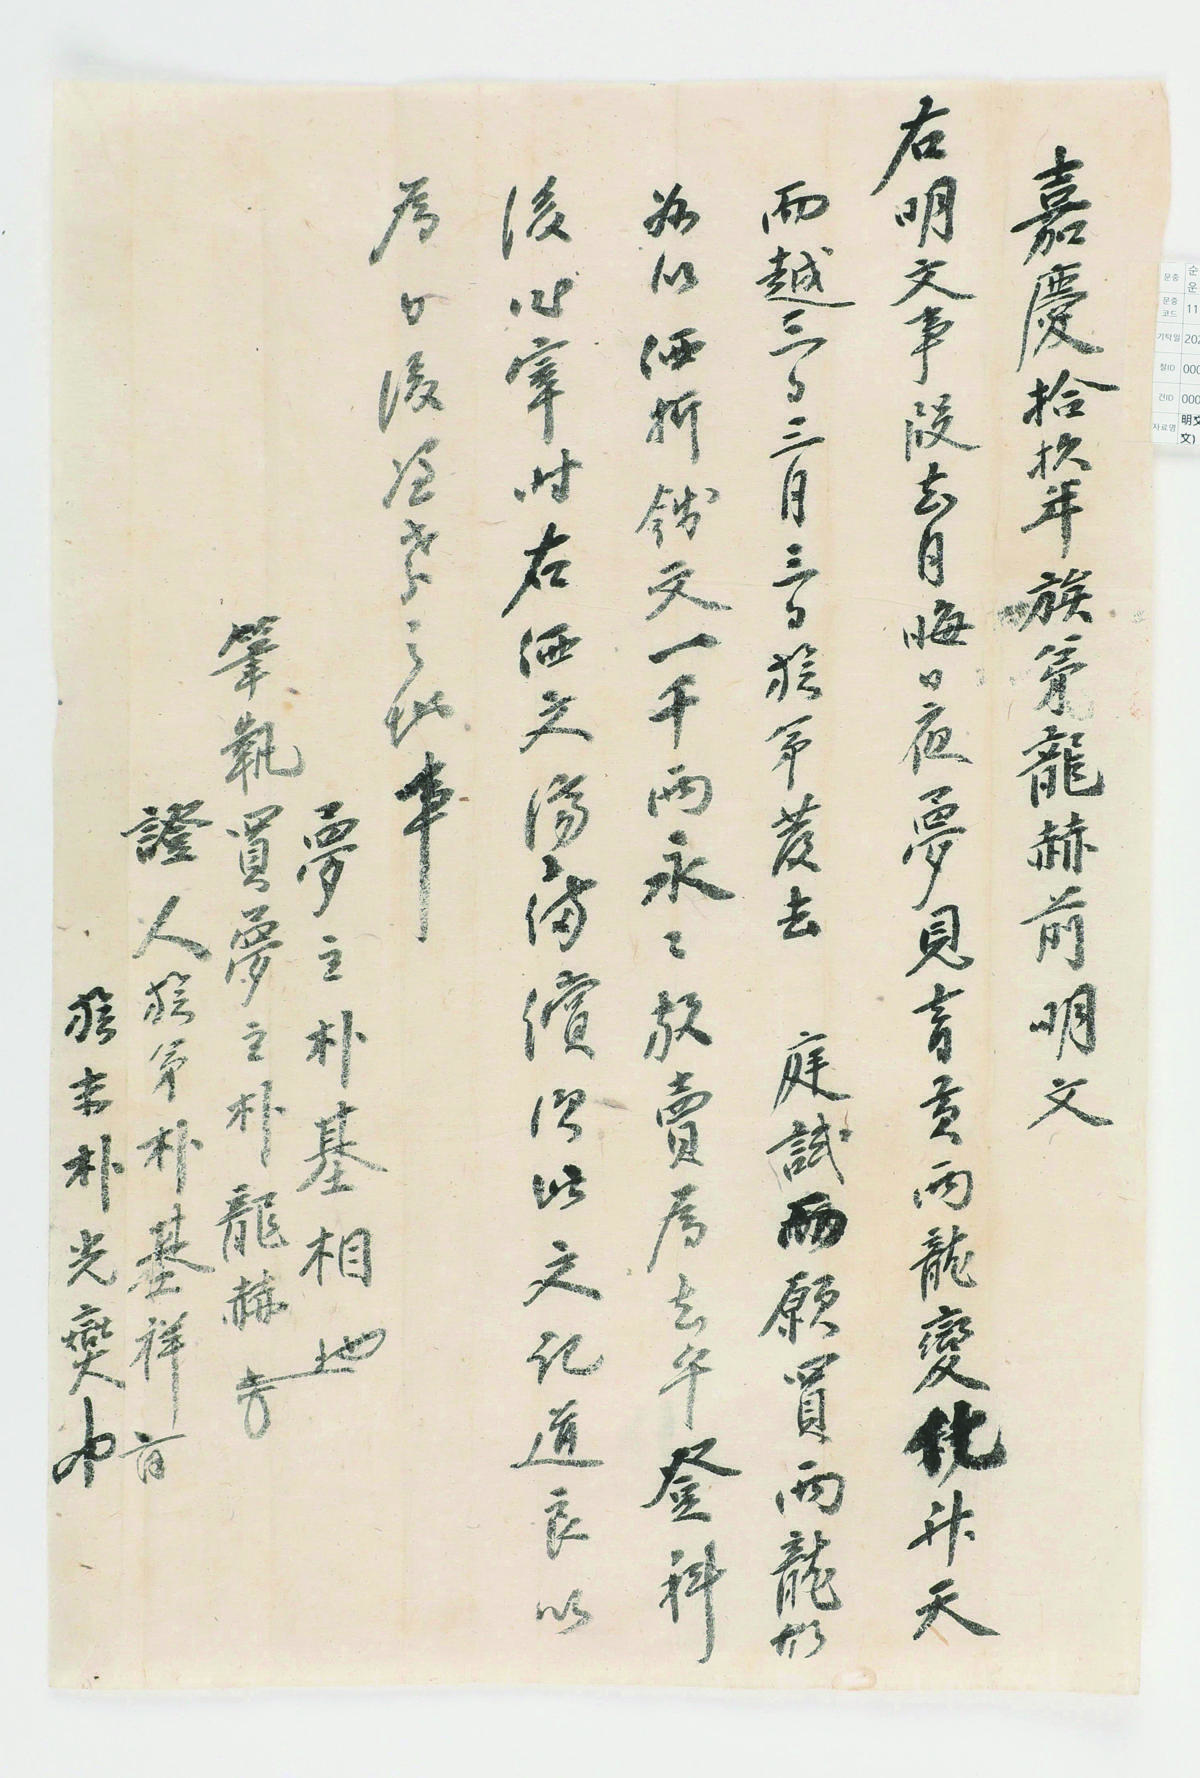 嘉慶拾玖年 族弟龍赫前明文
右明文事段去月晦日夜夢見青黃兩龍變化升天
而越三日三月三日族弟發去 庭試而願買兩龍
以価折錢文一千兩永々放賣爲去乎登科
後出宰時右価文備償次此文記導良以
爲日後憑考之地事
夢主朴基相
筆執買夢主朴龍赫
證人族弟朴基祥
族末朴光燮
문중 순 운
문중 코드 11
기탁일 202
철ID 000
건ID 000
자료명 明文 文)